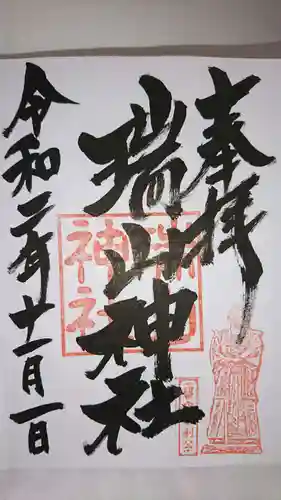 奉拝
瑞山神社
令和二年十一月一日
瑞山
神社